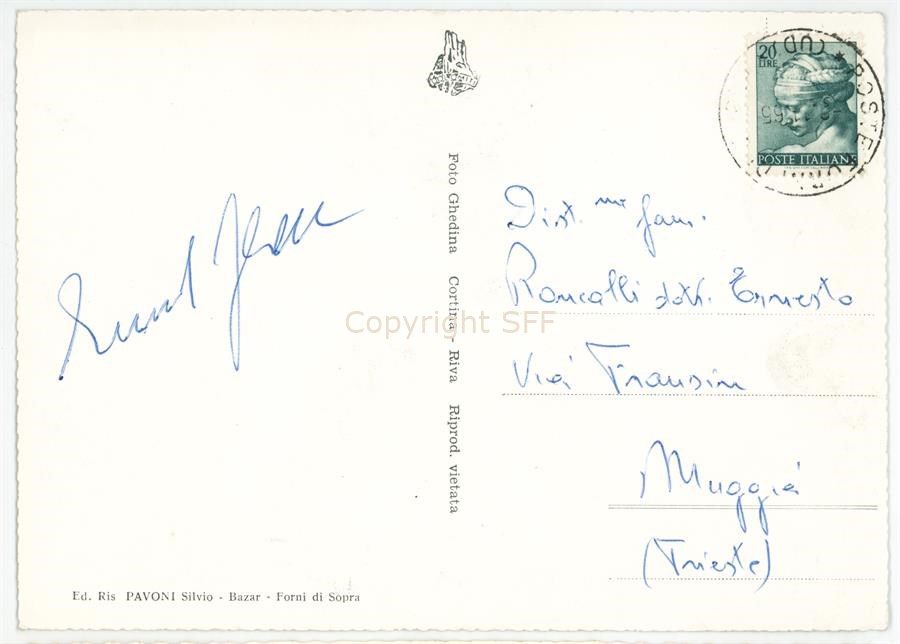 20
LIRE
POSTE ITALIANE
Foto Ghedina Cortina - Riva Riprod. vietata
Dist. me fam.
Roncalli dott. Ernesto
Via Frausin
Muggia
(Trieste)
Copyright SFF
Ed. Ris PAVONI Silvio - Bazar - Forni di Sopra